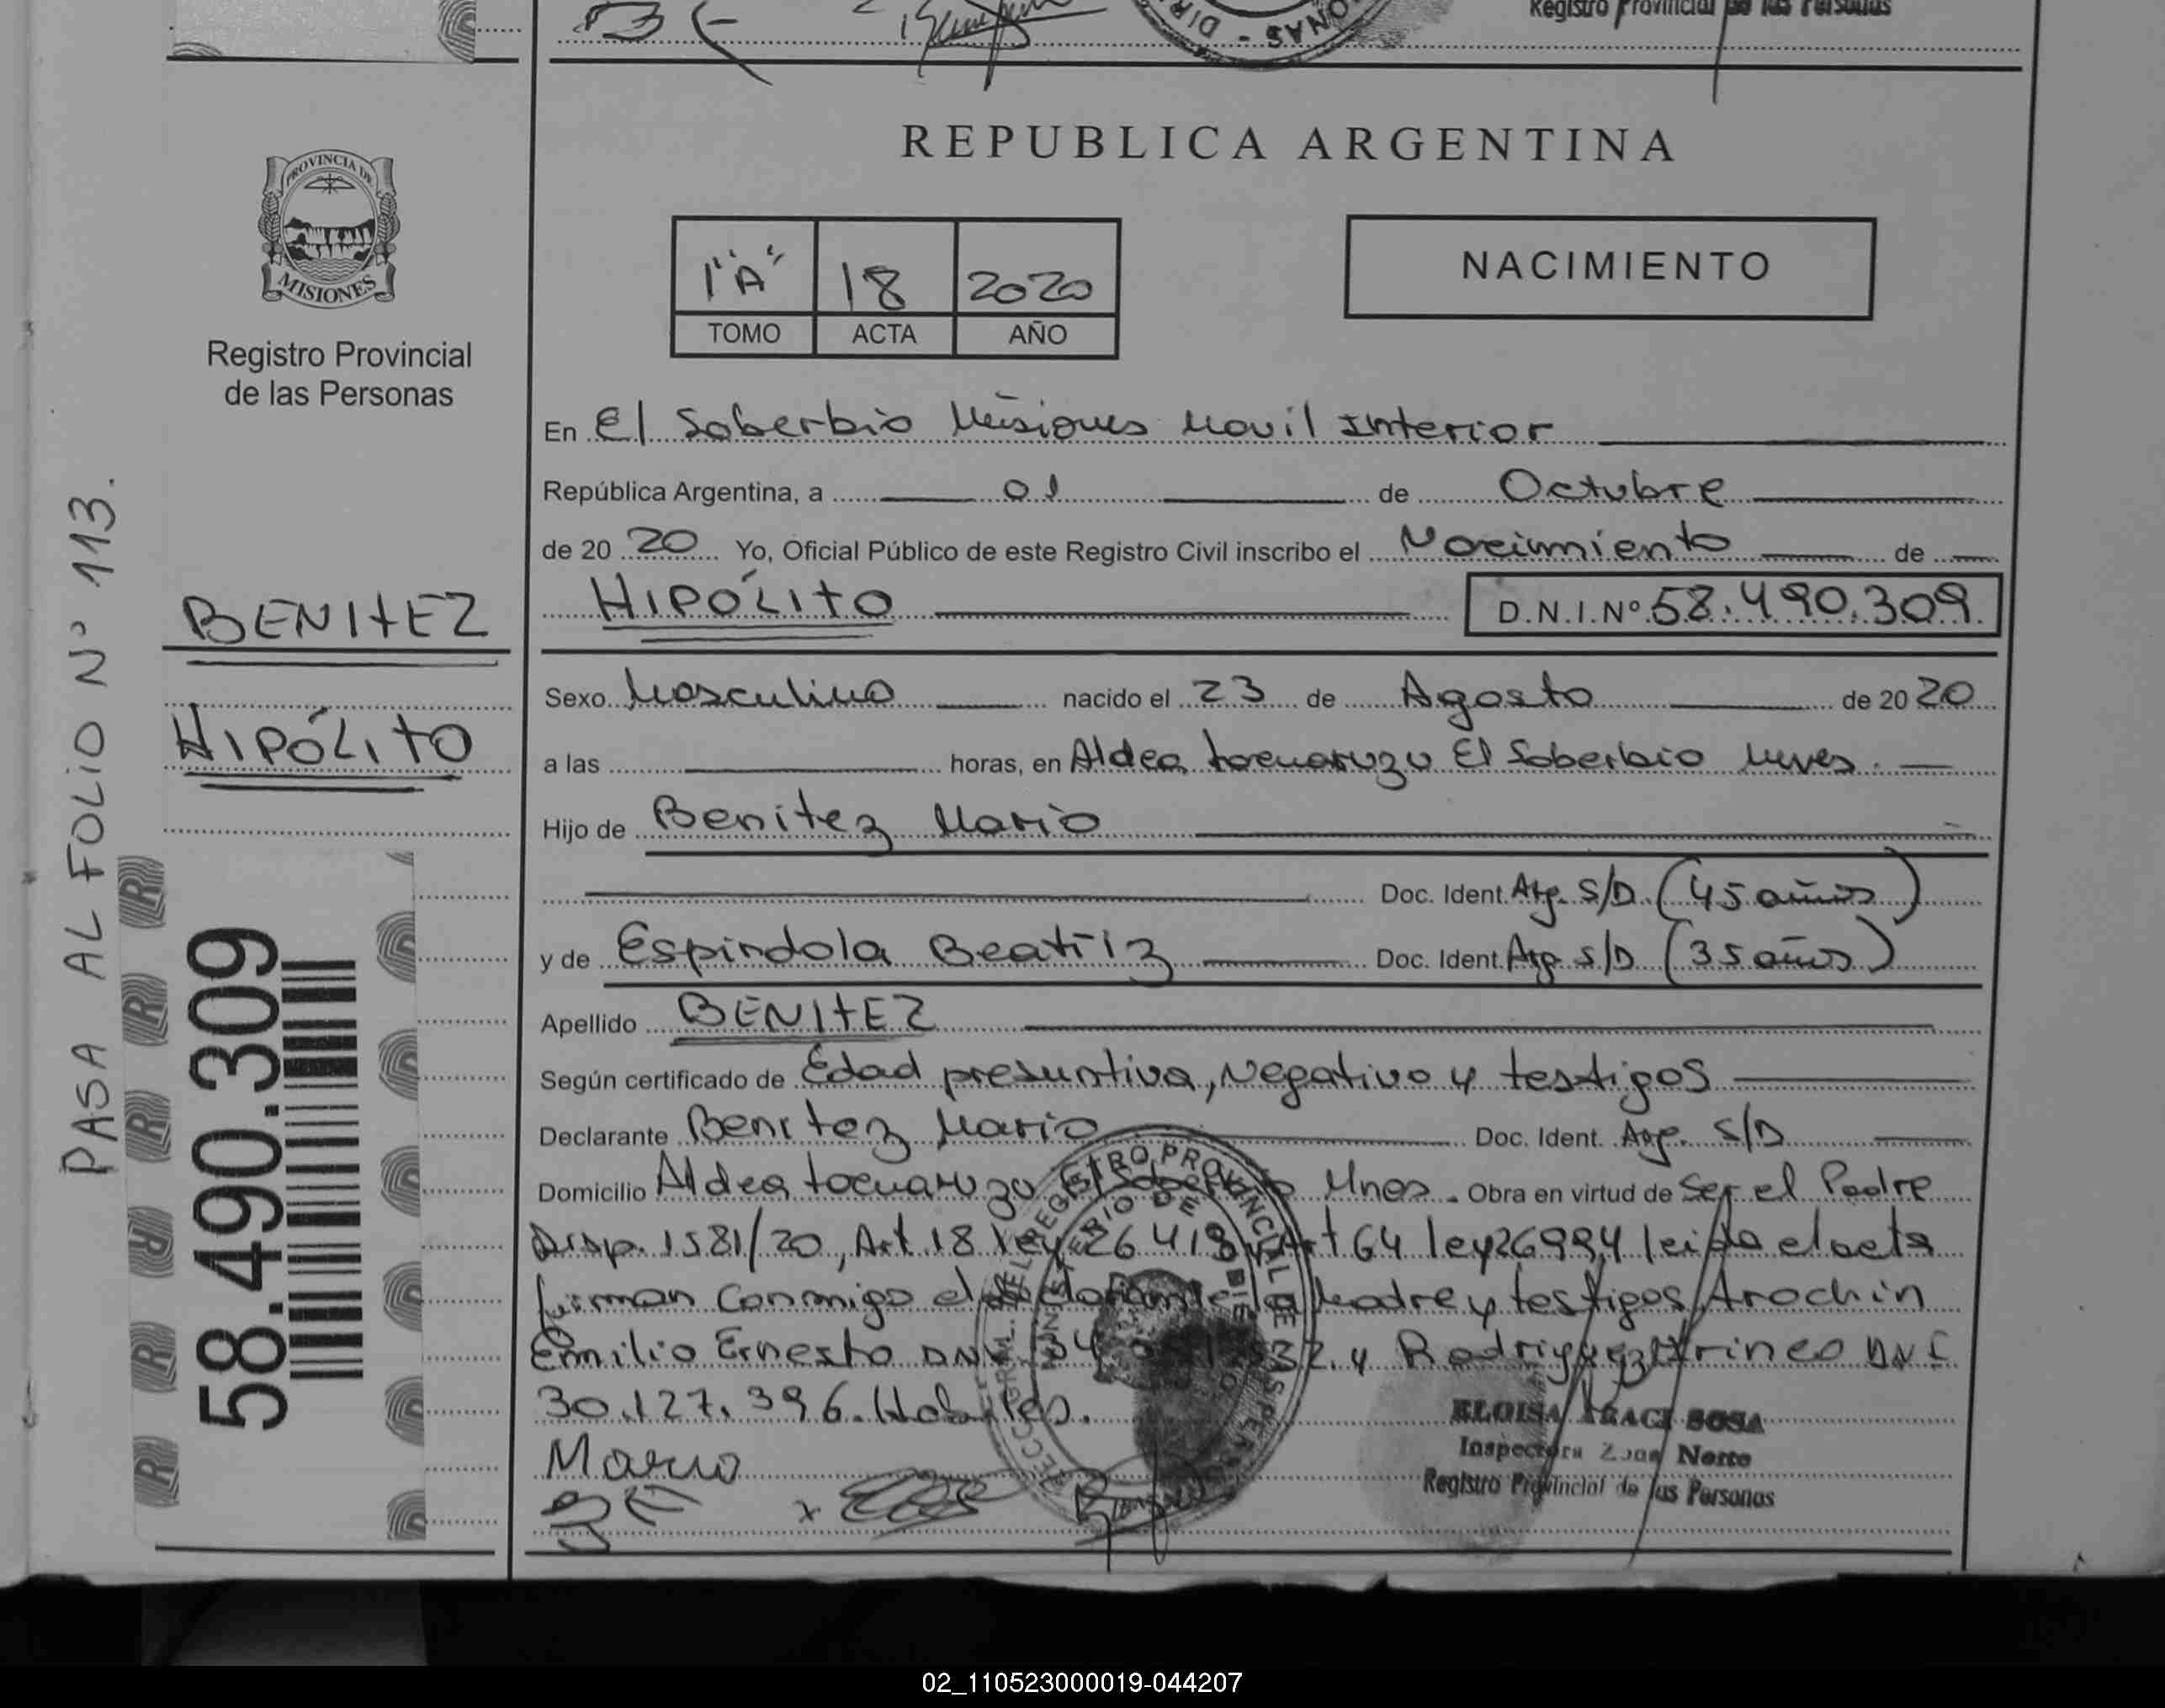 Registro Provincial de las Personas
DIR
ONAS -
PROVINCIA DE
MISIONES
Registro Provincial
de las Personas
PASA AL FOLIO N° 113.
BENITEZ
HIPÓLITO
58.490.309
REPUBLICA ARGENTINA
1"A" 18 2020
TOMO ACTA AÑO
NACIMIENTO
En El Soberbio Misiones Movil Interior
República Argentina, a 01 de Octubre
de 20 20 Yo, Oficial Público de este Registro Civil inscribo el Nacimiento de
HIPÓLITO D.N.I.Nº 58.490.309
Sexo Masculino nacido el 23 de Agosto de 20 20
a las horas, en Aldea tacuaruzu El Soberbio Mnes.
Hijo de Benitez Mario
Doc. Ident. Arg. S/D (45 años)
y de Espindola Beatriz Doc. Ident. Arg. S/D (35 años)
Apellido BENITEZ
Según certificado de Edad presuntiva, Negativo y testigos
Declarante Benitez Mario Doc. Ident. Arg. S/D
Domicilio Aldea tacuaruzu El Soberbio Mnes. Obra en virtud de Ser el Padre
Disp. 1581/20, Art. 18 ley 26413 y Art 64 ley 26994 leida el acta
firman conmigo el declarante la Madre y testigos Arochin
Emilio Ernesto DNI 34 y Rodriguez Irineo DNI
30.127.396. Habiles.
Mario
BE
ELOISA ARACI SOSA
Inspectora Zona Norte
Registro Provincial de las Personas
02_110523000019-044207